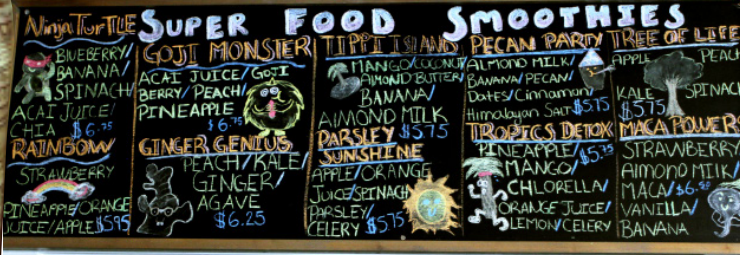 SUPER FOOD SMOOTHIES
Ninja TurTLE
BLUEBERRY/
BANANA/
SPINACH/
ACAI JUICE/
CHIA $6.75
RAINBOW
STRAWBERRY
PINEAPPLE/ORANGE
JUICE/APPLE $5.95
GOJI MONSTER
ACAI JUICE/GOJI
BERRY/PEACH/
PINEAPPLE
$6.75
GINGER GENIUS
PEACH/KALE/
GINGER/
AGAVE
$6.25
TIPPI ISLAND
MANGO/COCONUT
ALMOND BUTTER/
BANANA/
ALMOND MILK
$5.75
PARSLEY
SUNSHINE
APPLE/ORANGE
JUICE/SPINACH
PARSLEY/
CELERY $5.75
PECAN PARTY
ALMOND MILK/
BANANA/PECAN/
Dates/Cinnamon/
Himalayan SALT $5.75
TROPICS DETOX
PINEAPPLE/ $5.75
MANGO/
CHLORELLA/
ORANGE JUICE/
LEMON/CELERY
TREE OF LIFE
APPLE PEACH
KALE SPINAC
$5.75
MACA POWER
STRAWBERRY
Almond MILK/
MACA/
VANILLA/
BANANA